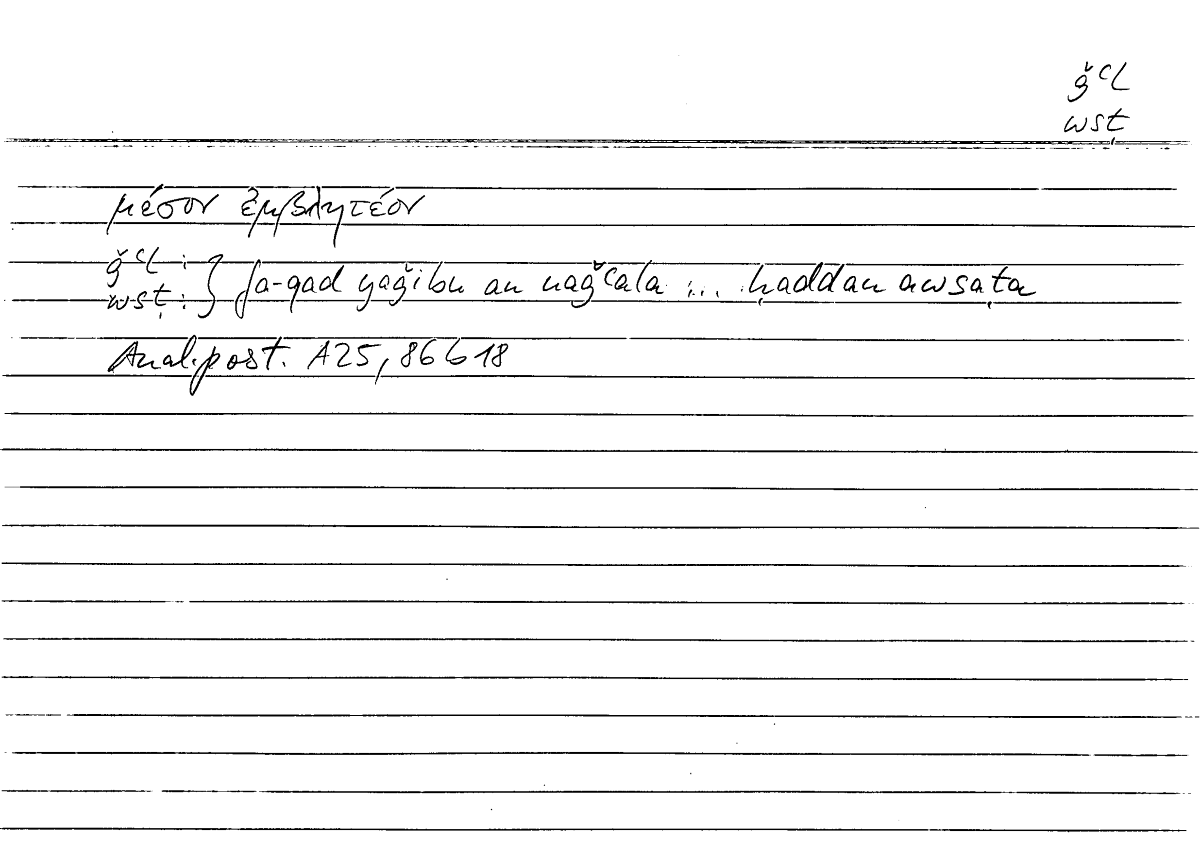 ǧʿl
wsṭ
μέσον ἐμβλητέον
ǧʿl : } fa-qad yaǧibu an naǧʿala ... ḥaddan awsaṭa
wsṭ :
Anal. post. A25, 86b18